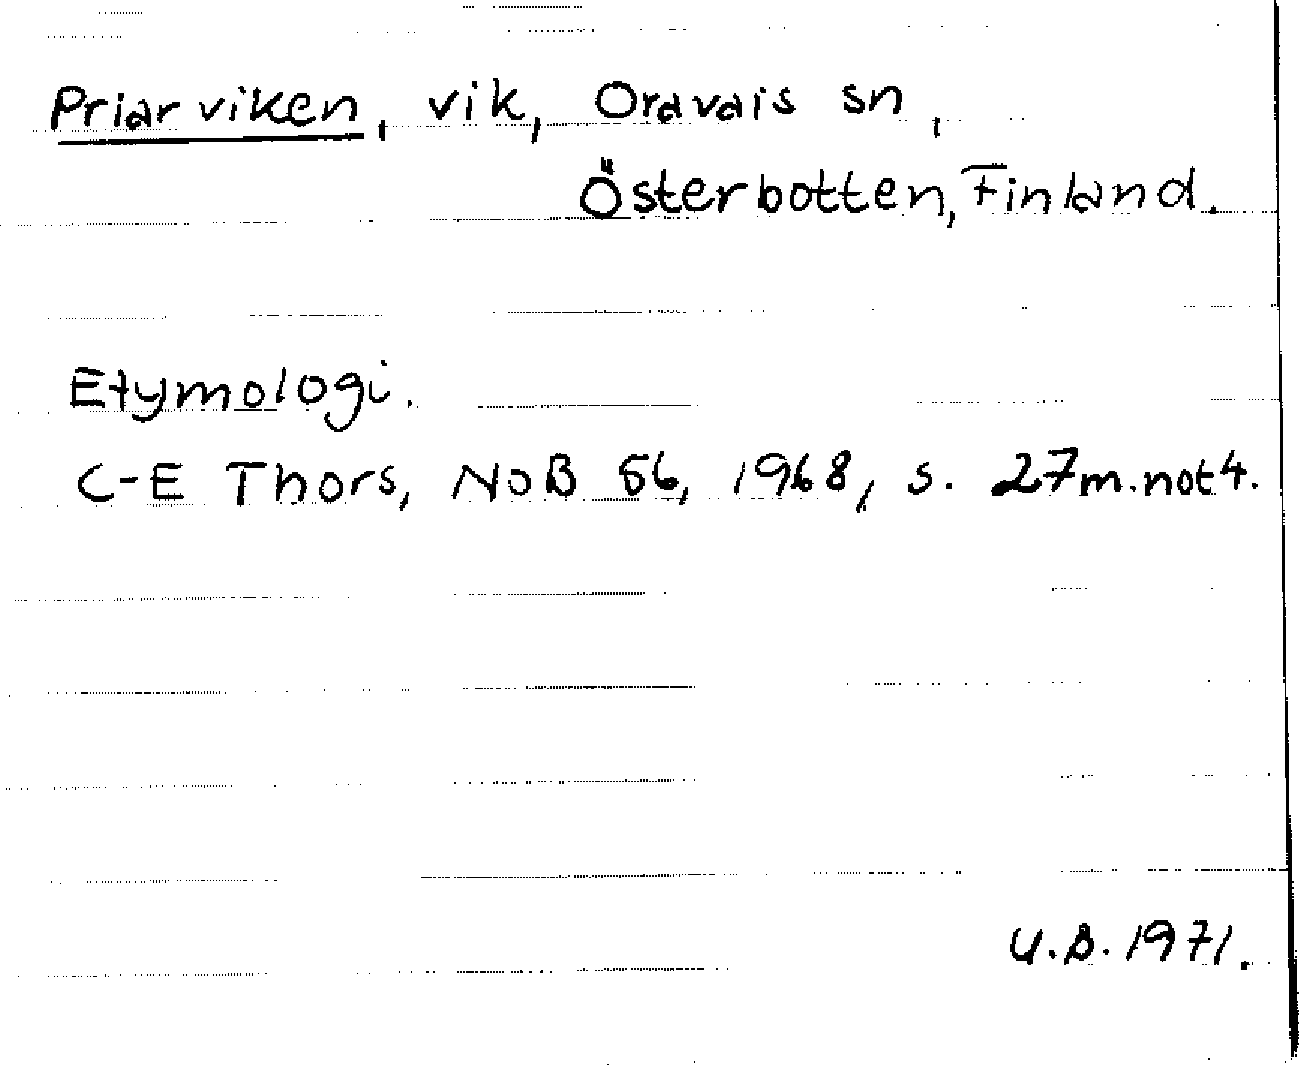 Priarviken, vik, Oravais sn,
Österbotten, Finland.
Etymologi.
C-E Thors, NoB 56, 1968, s. 27 m. not 4.
U.B. 1971.